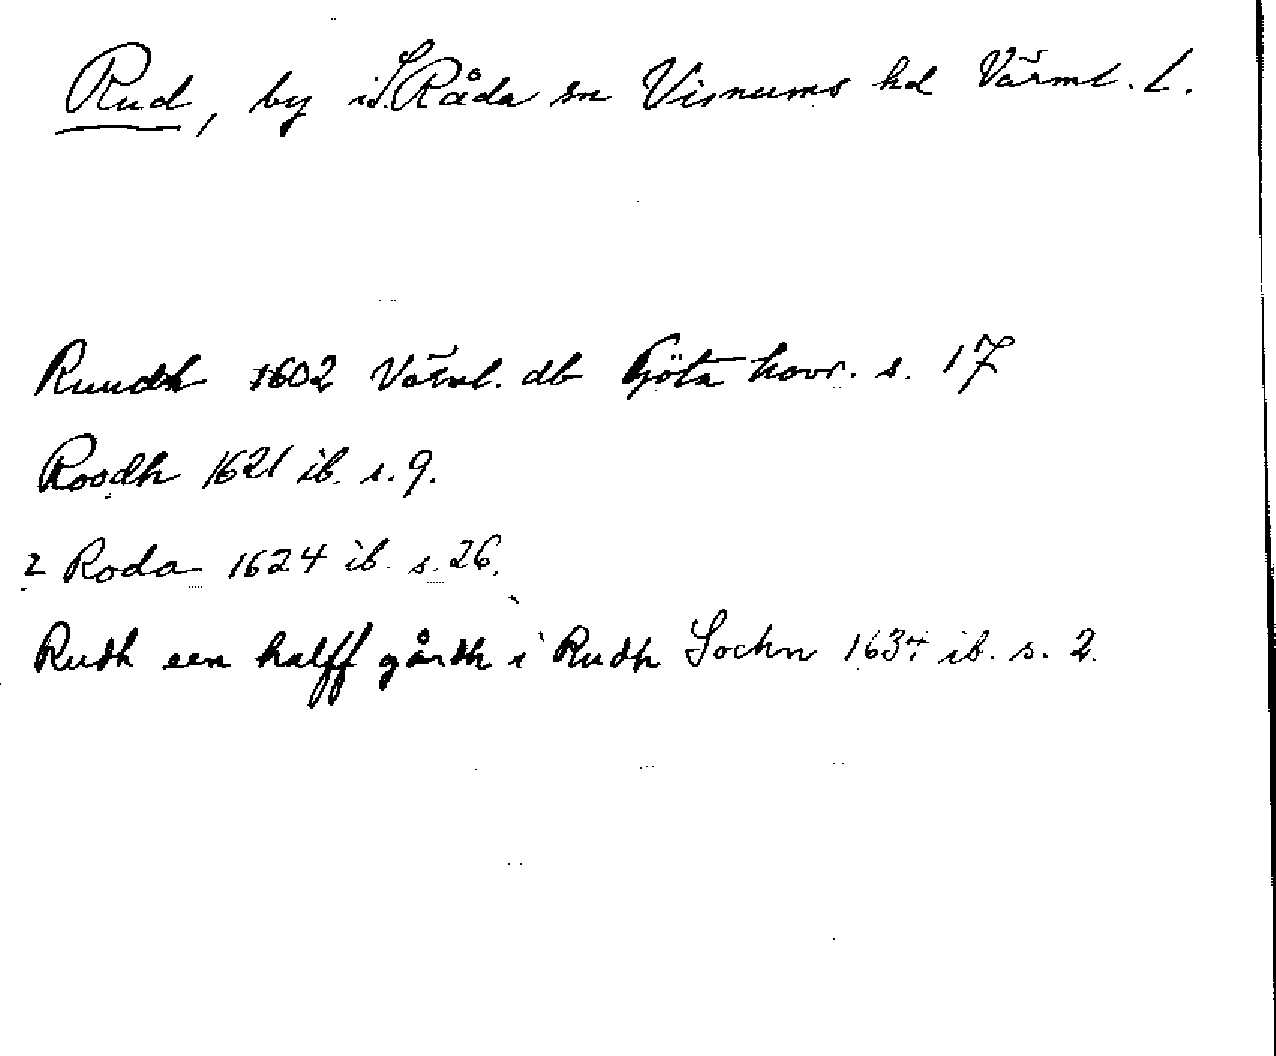 Rud, by i S. Råda sn Visnums hd Värml. L.
Ruudh 1602 Värml. db Göta hovr. s. 17
Roodh 1621 ib. s. 9.
2 Roda 1624 ib. s. 26.
Rudh een halff gårdh i Rudh Sochn 1634 ib. s. 2.